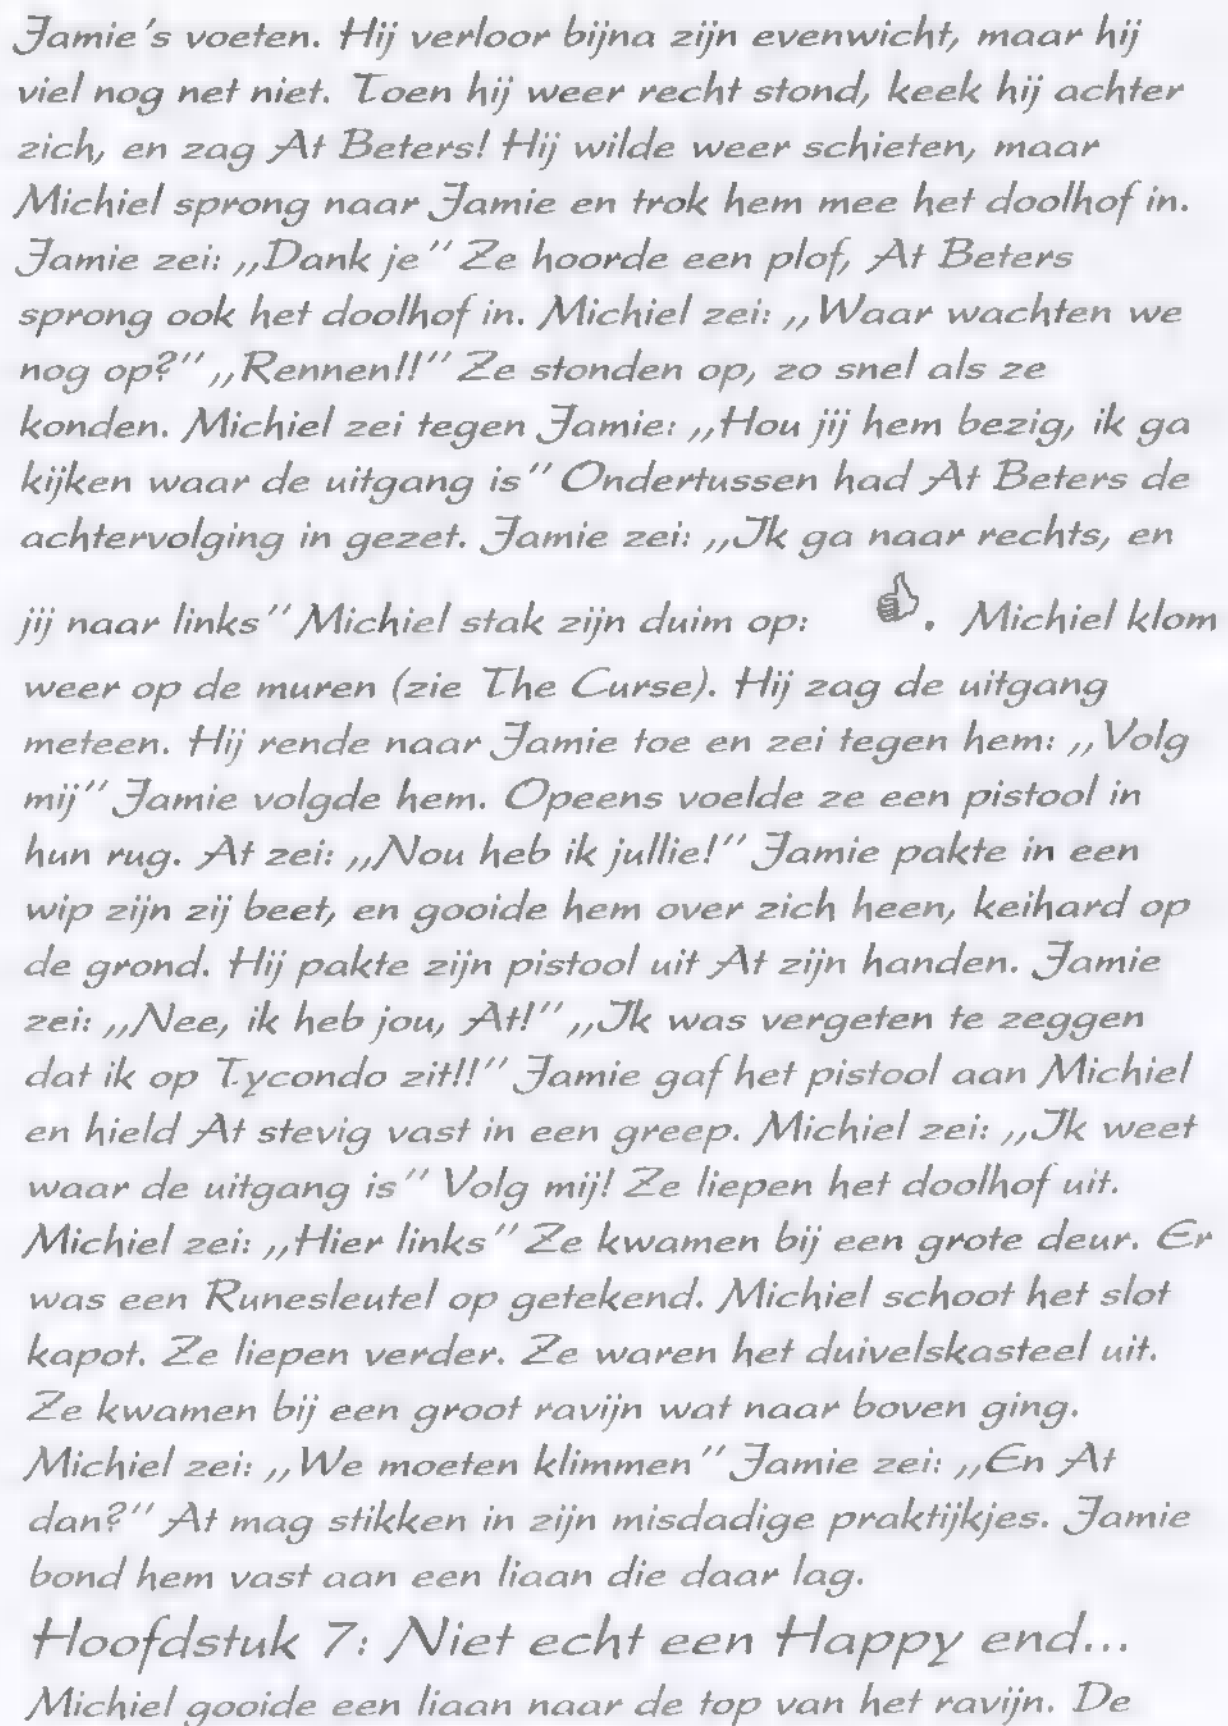 Jamie's voeten. Hij verloor bijna zijn evenwicht, maar hij
viel nog net niet. Toen hij weer recht stond, keek hij achter
zich, en zag At Beters! Hij wilde weer schieten, maar
Michiel sprong naar Jamie en trok hem mee het doolhof in.
Jamie zei: ,,Dank je'' Ze hoorde een plof, At Beters
sprong ook het doolhof in. Michiel zei: ,,Waar wachten we
nog op?'' ,,Rennen!!'' Ze stonden op, zo snel als ze
konden. Michiel zei tegen Jamie: ,,Hou jij hem bezig, ik ga
kijken waar de uitgang is'' Ondertussen had At Beters de
achtervolging in gezet. Jamie zei: ,,Ik ga naar rechts, en
jij naar links'' Michiel stak zijn duim op: 👍. Michiel klom
weer op de muren (zie The Curse). Hij zag de uitgang
meteen. Hij rende naar Jamie toe en zei tegen hem: ,,Volg
mij'' Jamie volgde hem. Opeens voelde ze een pistool in
hun rug. At zei: ,,Nou heb ik jullie!'' Jamie pakte in een
wip zijn zij beet, en gooide hem over zich heen, keihard op
de grond. Hij pakte zijn pistool uit At zijn handen. Jamie
zei: ,,Nee, ik heb jou, At!'' ,,Ik was vergeten te zeggen
dat ik op Tycondo zit!!'' Jamie gaf het pistool aan Michiel
en hield At stevig vast in een greep. Michiel zei: ,,Ik weet
waar de uitgang is'' Volg mij! Ze liepen het doolhof uit.
Michiel zei: ,,Hier links'' Ze kwamen bij een grote deur. Er
was een Runesleutel op getekend. Michiel schoot het slot
kapot. Ze liepen verder. Ze waren het duivelskasteel uit.
Ze kwamen bij een groot ravijn wat naar boven ging.
Michiel zei: ,,We moeten klimmen'' Jamie zei: ,,En At
dan?'' At mag stikken in zijn misdadige praktijkjes. Jamie
bond hem vast aan een liaan die daar lag.
Hoofdstuk 7: Niet echt een Happy end...
Michiel gooide een liaan naar de top van het ravijn. De